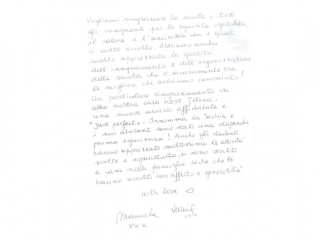 Vogliamo ringraziare la scuola e tutti
gli insegnanti per la squisita ospitalità,
il calore e l'amicizia con i quali
ci avete accolto. Abbiamo anche
molto apprezzato la qualità
dell'insegnamento e dell'organizzazione
della scuola che è sicuramente tra
le migliori che abbiamo conosciuto!
Un particolare ringraziamento va
alla nostra cara Host Jelena,
una nuova amica affidabile e
"just perfect". Insomma la Serbia e
i suoi abitanti sono stati una stupenda
prima esperienza! Anche gli studenti
hanno apprezzato moltissimo le attività
svolte e soprattutto si sono sentiti
a casa nelle famiglie serbe che li
hanno accolti con affetto e generosità
with love
Manuela
xxx